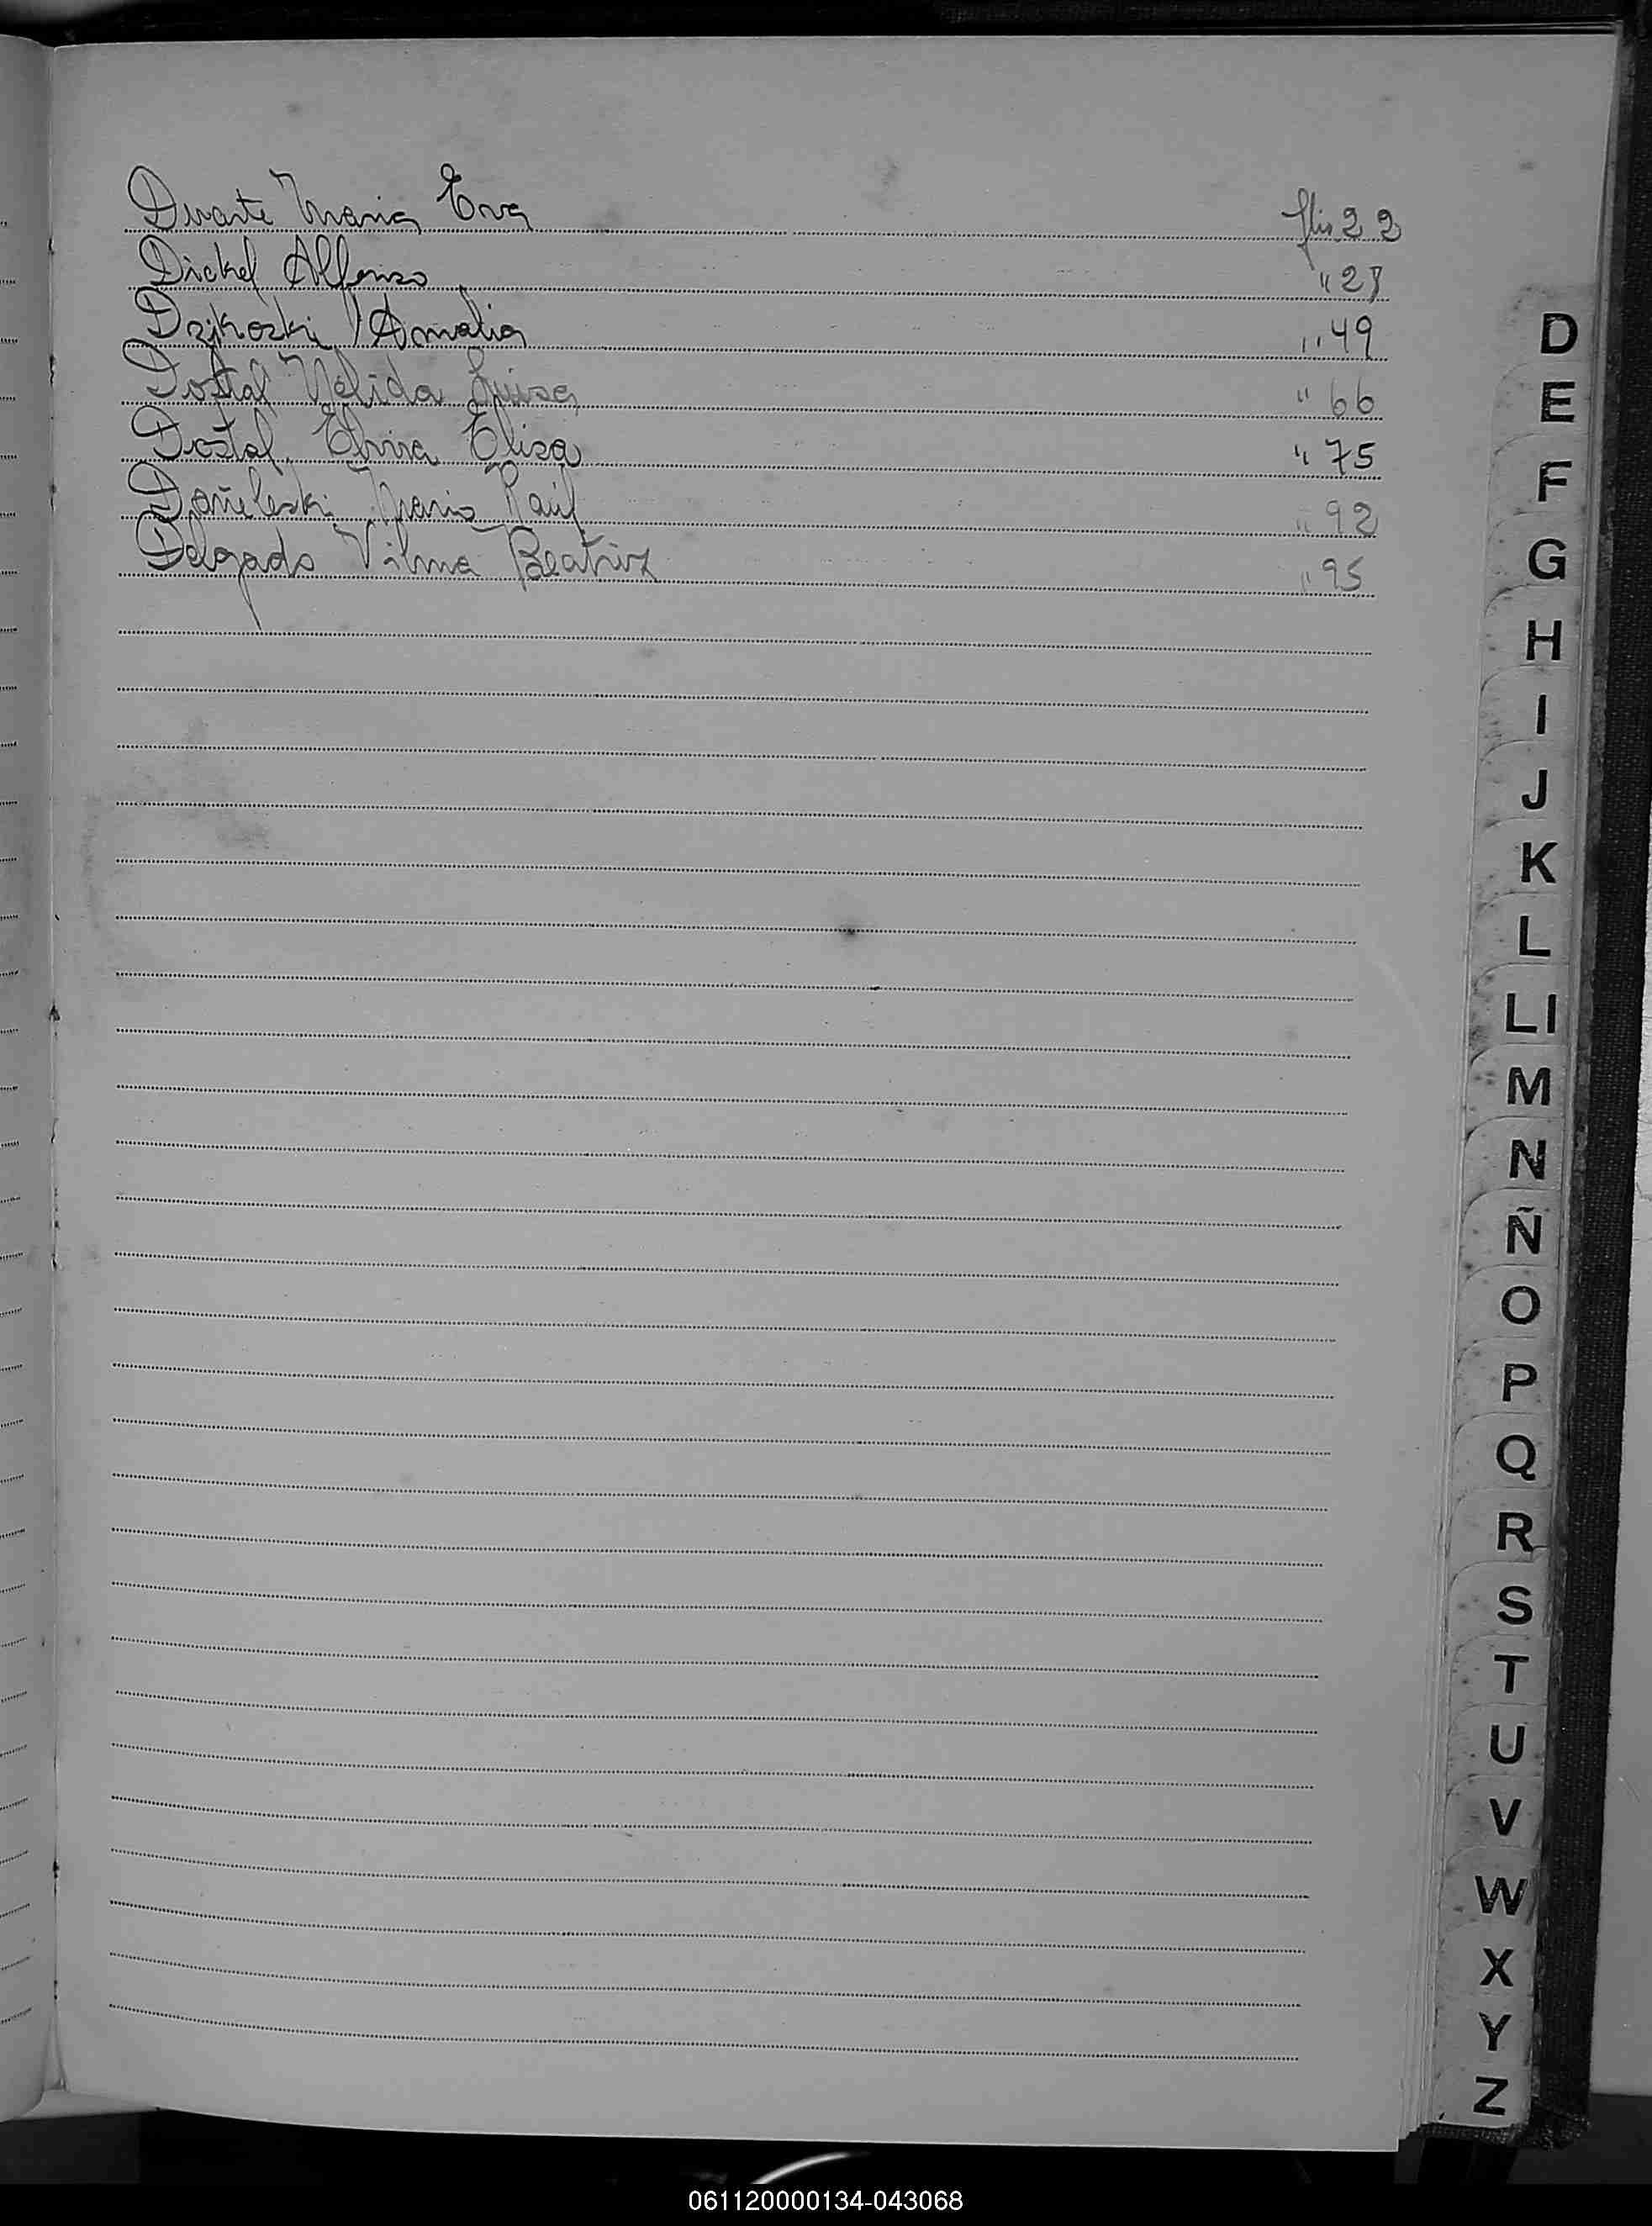 Duarte Maria Eva flio 22
Dickel Alfonso " 27
Dzikoski Amalia " 49
Dostal Nélida Luisa " 66
Dostal Elvira Elisa " 75
Dañeleski Mario Raúl " 92
Delgado Vilma Beatriz " 95
D
E
F
G
H
I
J
K
L
Ll
M
N
Ñ
O
P
Q
R
S
T
U
V
W
X
Y
Z
061120000134-043068